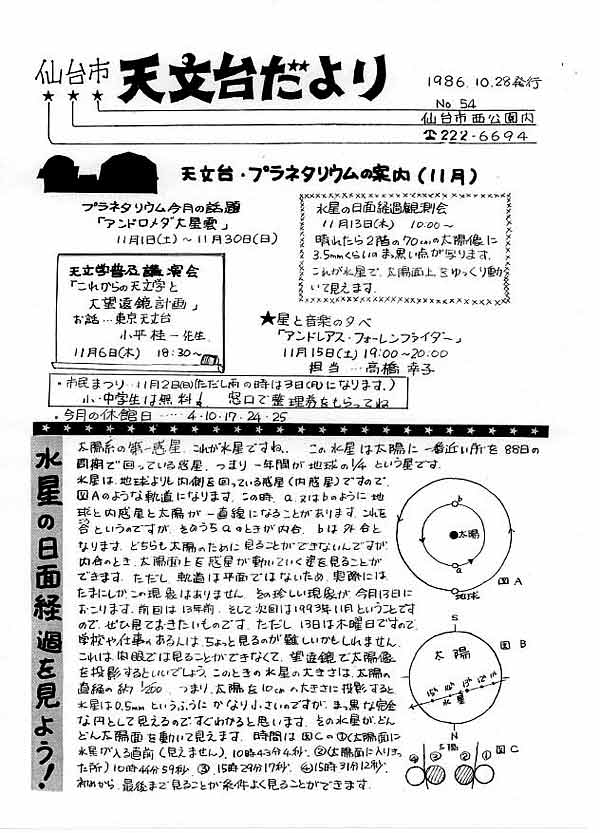 仙台市 天文台だより
1986.10.28発行
No 54
仙台市西公園内
☎222-6694
天文台・プラネタリウムの案内(11月)
プラネタリウム今月の話題
「アンドロメダ大星雲」
11月1日(土)～11月30日(日)
水星の日面経過観測会
11月13日(木) 10:00～
晴れたら2階の70cmの太陽像に
3.5mmくらいのまっ黒い点が写ります。
これが水星で、太陽面上をゆっくり動
いて見えます。
天文学普及講演会
「これからの天文学と
大望遠鏡計画」
お話…東京天文台
小平桂一先生
11月6日(木) 18:30～
★星と音楽の夕べ
「アンドレアス・フォーレンファイダー」
11月15日(土) 19:00～20:00
担当…高橋幸子
・市民まつり…11月2日(日)(ただし雨の時は3日(月)になります。)
小・中学生は無料! 窓口で整理券をもらってね
・今月の休館日……4・10・17・24・25
水星の日面経過を見よう!
太陽系の第一惑星、これが水星ですね。この水星は太陽に一番近い所を88日の
周期で回っている惑星、つまり一年間が地球の1/4という星です。
水星は、地球より内側を回っている惑星(内惑星)ですので、
図Aのような軌道になります。この時、a、又はbのように地
球と内惑星と太陽が一直線になることがあります。これを
合というのですが、そのうちaのときが内合、bは外合と
なります。どちらも太陽のために見ることができないんですが、
内合のとき、太陽面上を惑星が動いていく姿を見ることが
できます。ただし、軌道は平面ではないため、実際には
たまにしかこの現象はありません。その珍しい現象が今月13日に
おこります。前回は13年前、そして次回は1993年11月ということです
ので、ぜひ見ておきたいものです。ただし13日は木曜日ですので、
学校や仕事のある人は、ちょっと見るのが難しいかもしれません。
これは、肉眼では見ることができなくて、望遠鏡で太陽像
を投影するといいでしょう。このときの水星の大きさは、太陽の
直経の約1/200、つまり、太陽を10cmの大きさに投影すると
水星は0.5mmというふうにかなり小さいのですが、まっ黒な完全
な円として見えるのですぐわかると思います。その水星が、どん
どん太陽面を動いて見えます。時間は図Cの①(太陽面に
水星が入る直前(見えません)、10時43分4秒、②(太陽面に入りきっ
た所)10時46分59秒、③15時29分17秒、④15時31分12秒、
初めから、最後まで見ることが条件よく見ることができます。
b
太陽
a
地球
図A
S
図B
太陽
水星
N
図C
太陽
④ ③ ② ①